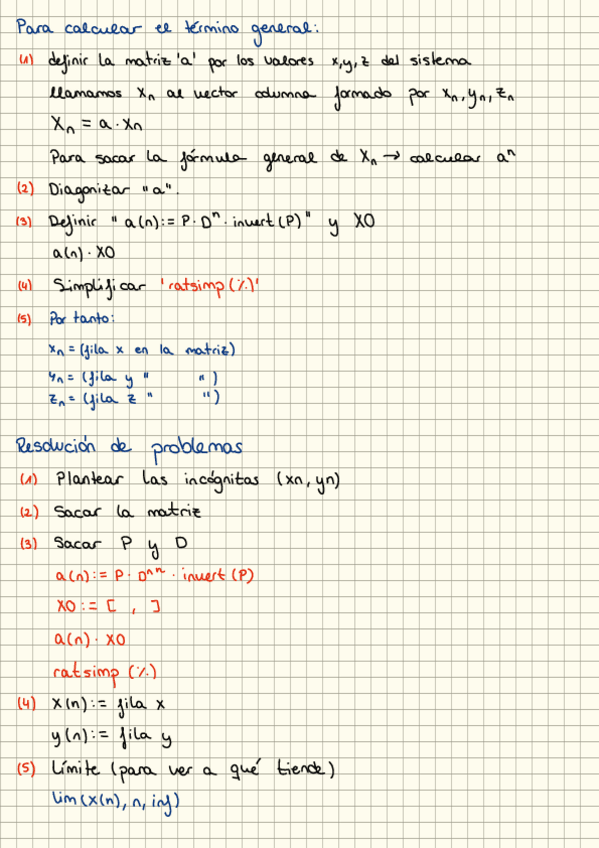 Para calcular el término general:
(1) definir la matriz 'a' por los valores x,y,z del sistema
llamamos Xn al vector columna formado por xn, yn, zn
Xn = a · xn
Para sacar la fórmula general de Xn → calcular aⁿ
(2) Diagonizar "a".
(3) Definir " a(n):= P · Dⁿ · invert(P)" y XO
a(n) · XO
(4) Simplificar 'ratsimp(%)'
(5) Por tanto:
xn = (fila x en la matriz)
yn = (fila y " " )
zn = (fila z " ")
Resolución de problemas
(1) Plantear las incógnitas (xn, yn)
(2) Sacar la matriz
(3) Sacar P y D
a(n):= P · D^^n · invert(P)
XO := [ , ]
a(n) · XO
ratsimp (%)
(4) x(n):= fila x
y(n):= fila y
(5) Límite (para ver a qué tiende)
lim(x(n), n, inf)